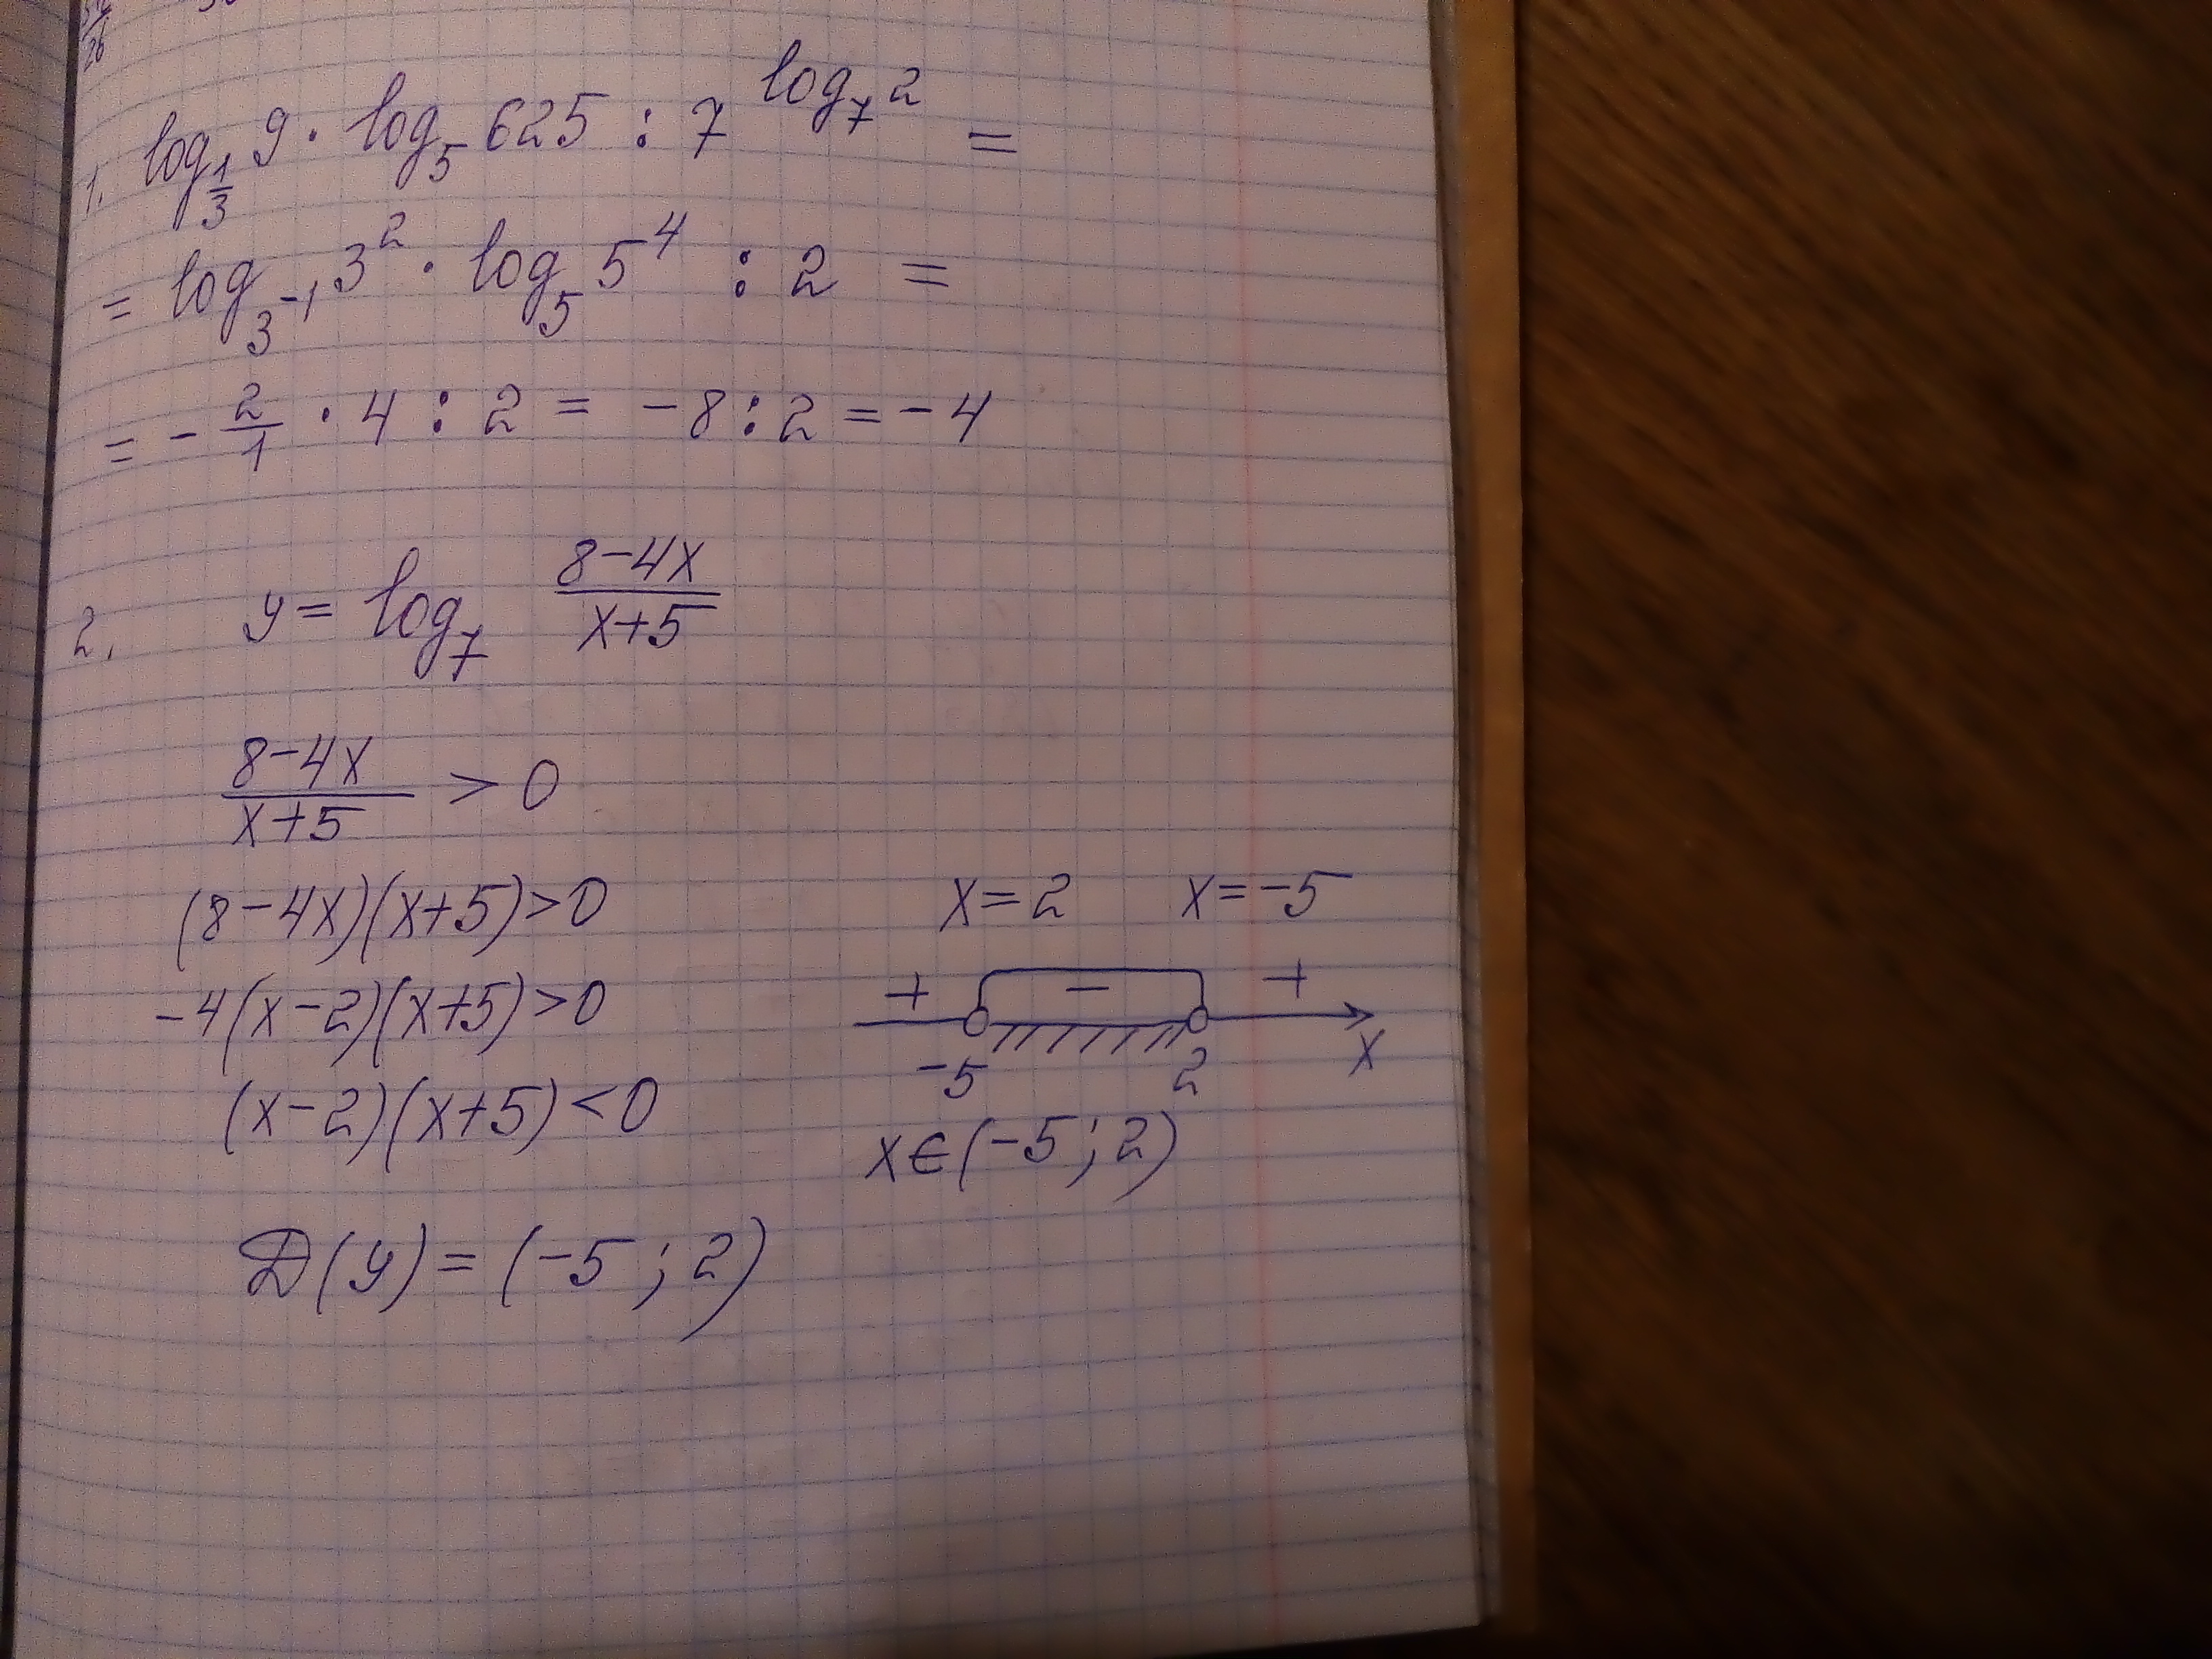 26
1. log_{1/3} 9 · log_5 625 : 7^{log_7 2} =
= log_{3^{-1}} 3^2 · log_5 5^4 : 2 =
= - 2/1 · 4 : 2 = -8 : 2 = -4
2. y = log_7 (8-4x)/(x+5)
(8-4x)/(x+5) > 0
(8-4x)(x+5)>0
x=2 x=-5
-4(x-2)(x+5)>0
+ - +
-5 2 x
(x-2)(x+5)<0
x∈(-5;2)
D(y)=(-5;2)